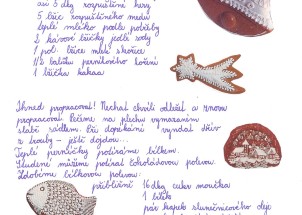 asi 5 dkg rozpuštěné hery
5 lžic rozpuštěného medu
teplé mléko podle potřeby
2 kávové lžičky jedlé sody
1 pol. lžíce mleté skořice
1/2 balíčku perníkového koření
1 lžička kakaa
Ihned zpracovat! Nechat chvíli odležet a znovu
propracovat. Pečeme na plechu vymazaném
slabě sádlem. Při dopékání vyndat dřív
z trouby – ještě dojdou...
Teplé perníčky potíráme bílkem.
Studené můžeme polévat čokoládovou polevou.
Zdobíme bílkovou polevou:
přibližně 16 dkg cukr moučka
1 bílek
pár kapek slunečnicového oleje